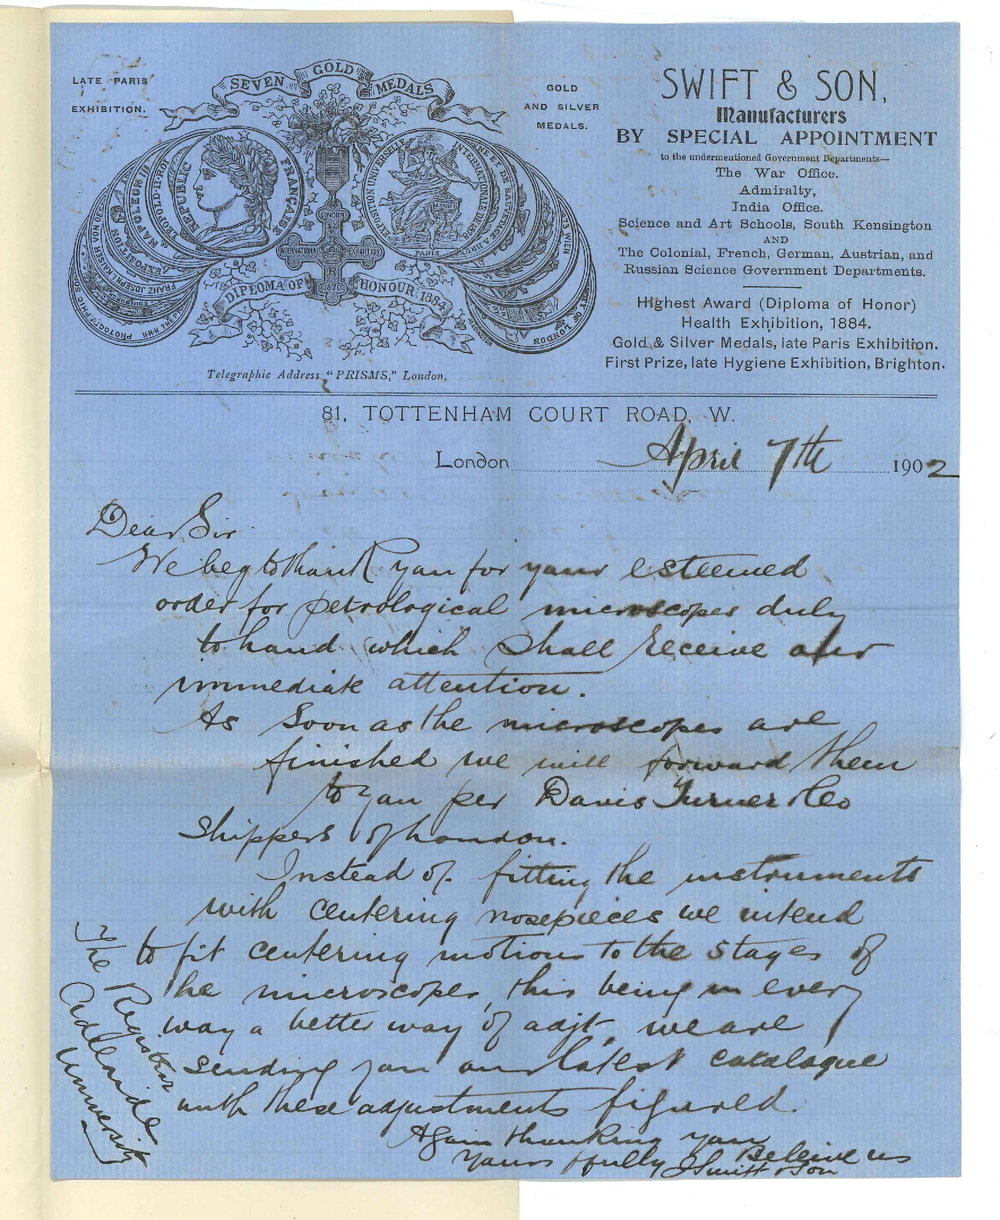 LATE PARIS
EXHIBITION.
SEVEN GOLD MEDALS
GOLD
AND SILVER
MEDALS.
REPUBLIQUE FRANÇAISE
EXPOSITION UNIVERSELLE INTERNATIONALE DE 1878
PARIS
NAPOLEON III
LEOPOLD II ROI
FRANZ JOSEPH I KAISER VON
HONOR
INTERNATIONAL EXHIBITION
DIPLOMA OF HONOUR 1884
Telegraphic Address "PRISMS," London.
SWIFT & SON,
Manufacturers
BY SPECIAL APPOINTMENT
to the undermentioned Government Departments—
The War Office.
Admiralty,
India Office.
Science and Art Schools, South Kensington
AND
The Colonial, French, German, Austrian, and
Russian Science Government Departments.
Highest Award (Diploma of Honor)
Health Exhibition, 1884.
Gold & Silver Medals, late Paris Exhibition.
First Prize, late Hygiene Exhibition, Brighton.
81, TOTTENHAM COURT ROAD, W.
London April 7th 1902
Dear Sir
We beg to thank you for your esteemed
order for petrological microscopes duly
to hand which shall receive our
immediate attention.
As soon as the microscopes are
finished we will forward them
to you per Davis Turner & Co
Shippers of London.
Instead of fitting the instruments
with centering nosepieces we intend
to fit centering motions to the stages of
the microscopes, this being in every
way a better way of adjt, we are
sending you our latest catalogue
with these adjustments figured.
Again thanking you
Believe us
Yours ffully J Swift & Son
The Registrar
Adelaide
University